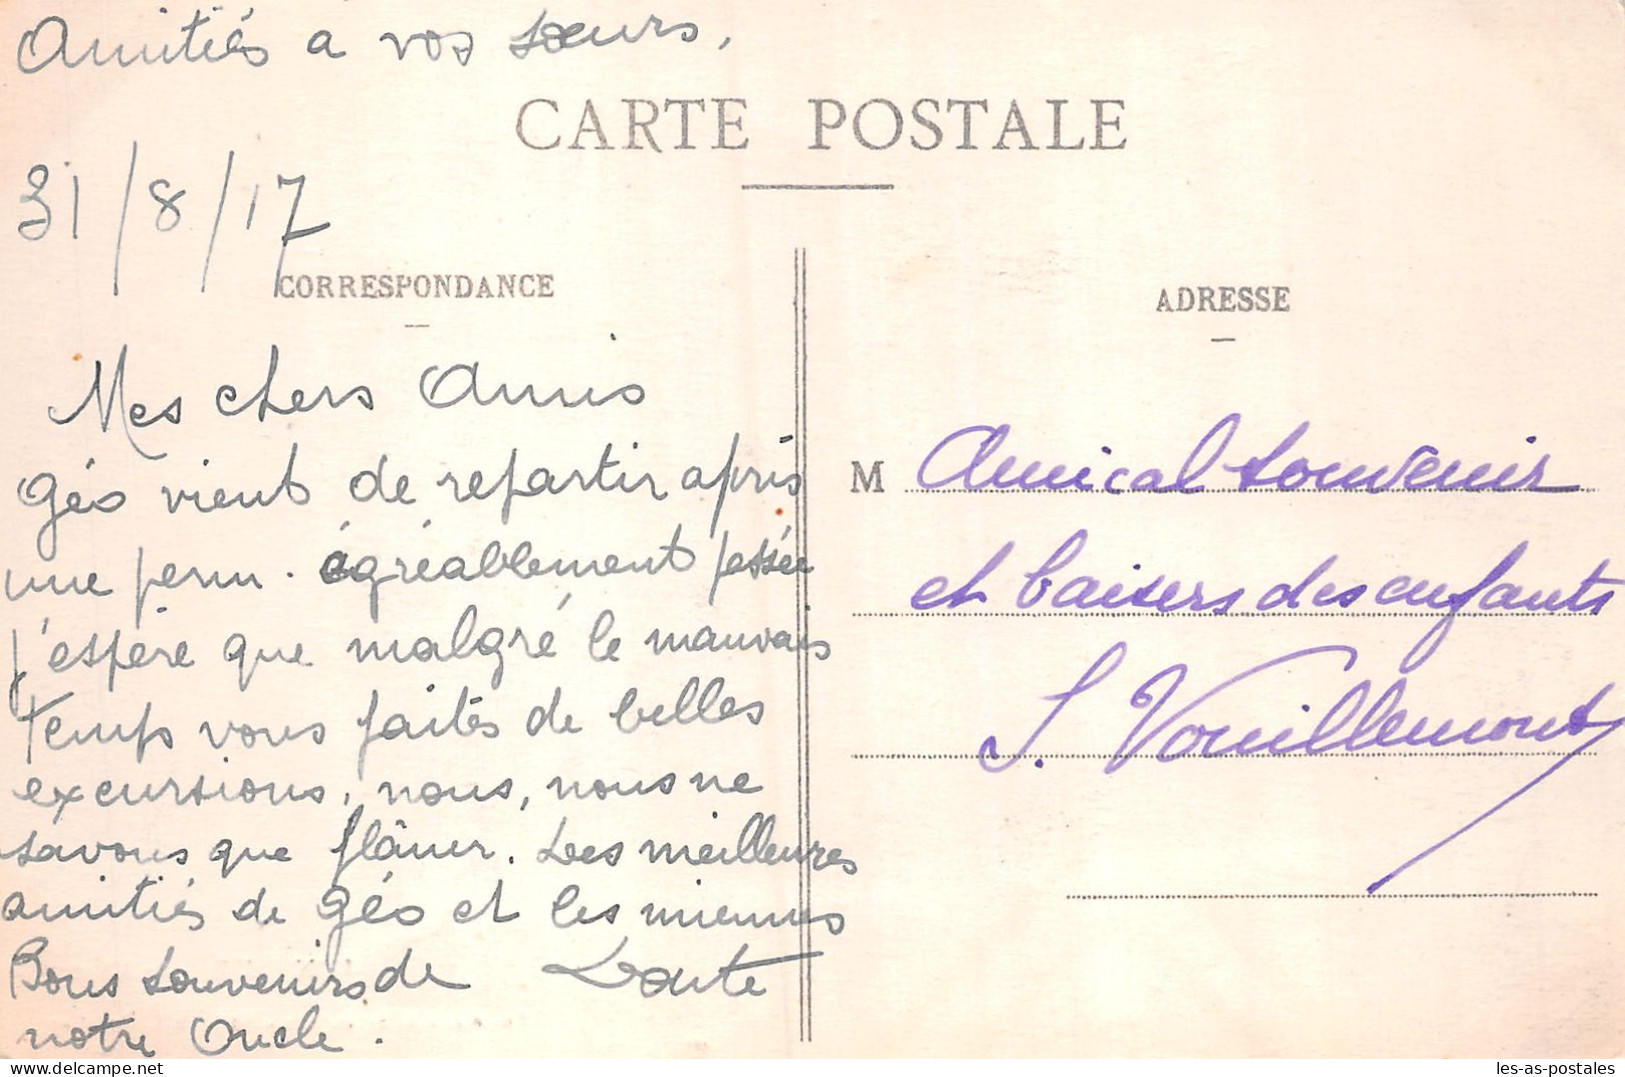 Amitiés a vos sœurs,
CARTE POSTALE
31/8/17
CORRESPONDANCE
ADRESSE
Mes chers Amis
Géo vient de repartir après
une perm. agréablement passée
j'espère que malgré le mauvais
temps vous faites de belles
excursions, nous, nous ne
savons que flâner. Les meilleures
amitiés de Géo et les miennes
Bons souvenirs de
notre Oncle.
M Amical souvenir
et baisers des enfants
S. Vouillemont
les-as-postales